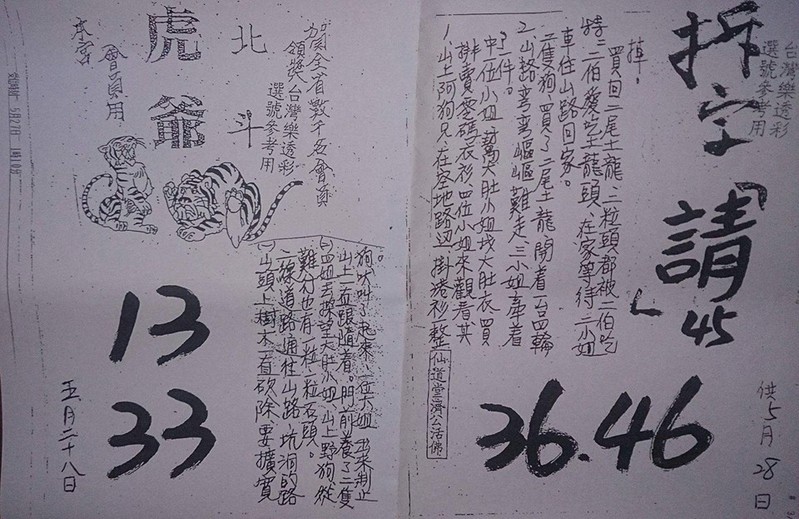 台灣樂透彩
選號參考用
拆字「請」
45
36.46
供5月28日
1、山上阿狗兄、在空地路 掛捲衫整
排賣零碼衣衫、四位小姐來觀看其
中一位小姐、幫大肚小姐找大肚衣買
了一件。
2、山路彎彎嶇嶇難走、三小姐牽着
二隻狗、買了二尾土龍開着一台四輪
車往山路回家。
特二伯愛吃土龍頭、在家等待二小姐
買回二尾土龍、二粒頭都被二伯吃
掉。
仙道堂濟公活佛
賀全省數千名會員
領獎台灣樂透彩
選號參考用
北斗
虎爺
會員用
13
33
五月二十八日
(一)山頭上樹木一直砍除、要擴寬
二線道路通往山路、坑洞的路
難行也有一粒一粒石頭。
(二)四姐去探望大肚小姐、山上野狗從
山上一直跟隨着。門前養了二隻
狗吠叫了起來、一位大姐出來制止
。